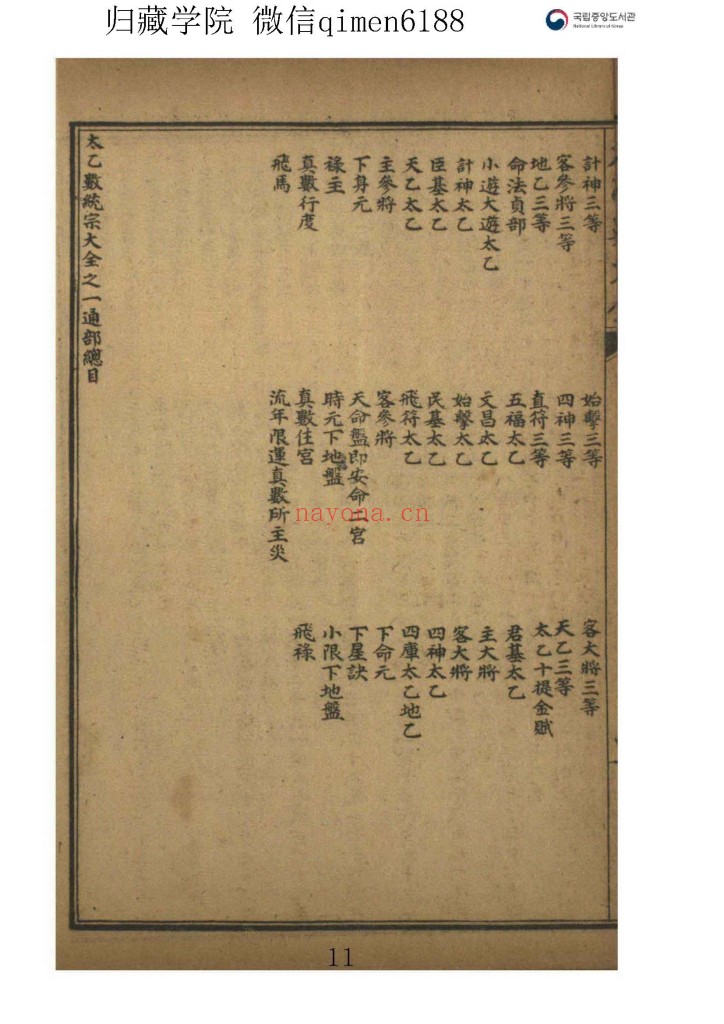 归藏学院 微信qimen6188
국립중앙도서관
National Library of Korea
計神三等 始擊三等 客大將三等
客參將三等 四神三等 天乙三等
地乙三等 直符三等 太乙十提金賦
命法貞部 五福太乙 君基太乙
小遊大遊太乙 文昌太乙 主大將
計神太乙 始擊太乙 客大將
臣基太乙 民基太乙 四神太乙
天乙太乙 飛符太乙 四庫太乙地乙
主參將 客參將 下命元
下身元 天命盤即安命宮 下星訣
祿主 時元下地盤 小限下地盤
真數行度 真數住宮 飛祿
飛馬 流年限運真數所主災
太乙數統宗大全之一通部總目
nayona.cn
11